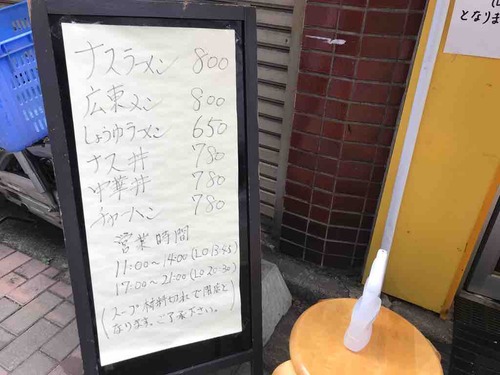 ナスラーメン 800
広東メン 800
しょうゆラーメン 650
ナス丼 780
中華丼 780
チャーハン 780
営業時間
11:00～14:00(LO 13:45)
17:00～21:00(LO 20:30)
(スープ材料切れで閉店と
なります。ご了承下さい。)
となりま